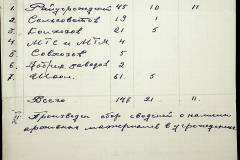 1. Райучреждений 45 10 11
2. Сельсоветов 13 1
3. Колхозов 21 5
4. МТС и МТМ 4 -
5. Совхозов 5 -
6. Фабрик заводов 2
7. Школ. 61. 5
Всего 21. 11.
Произведен сбор сведений о наличии
архивных материалов в учреждениях